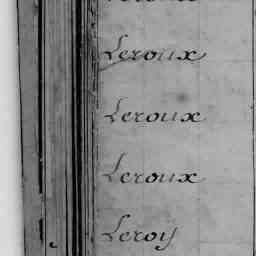 Leroux
Leroux
Leroux
Leroy